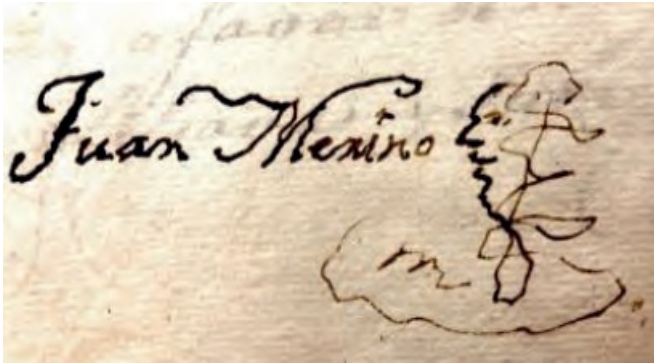 Juan Merino